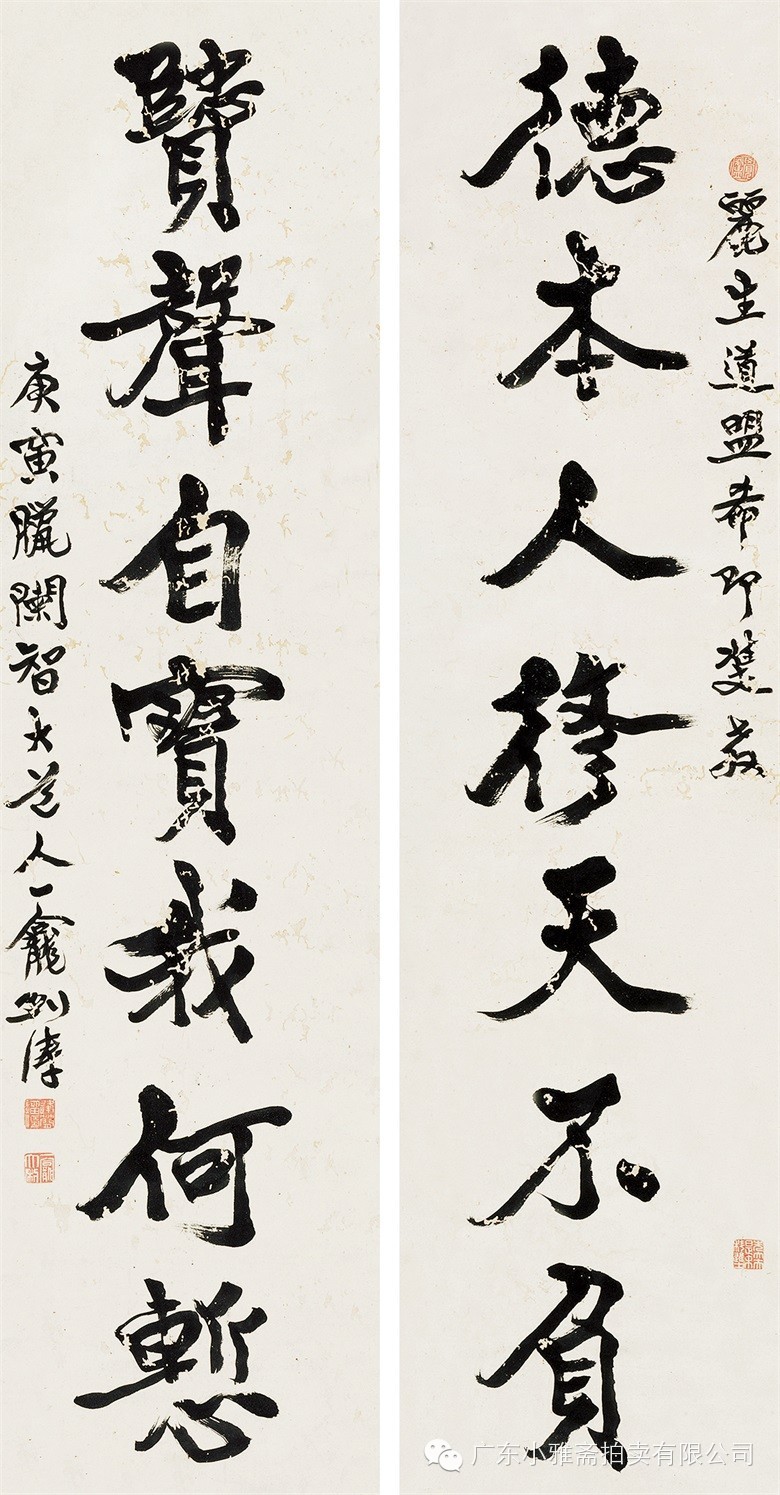 德本人修天不負
麗生道盟希即雙教
賢聲自寶我何慙
庚寅臘闌智大道人一龕劉
广东小雅斋拍卖有限公司